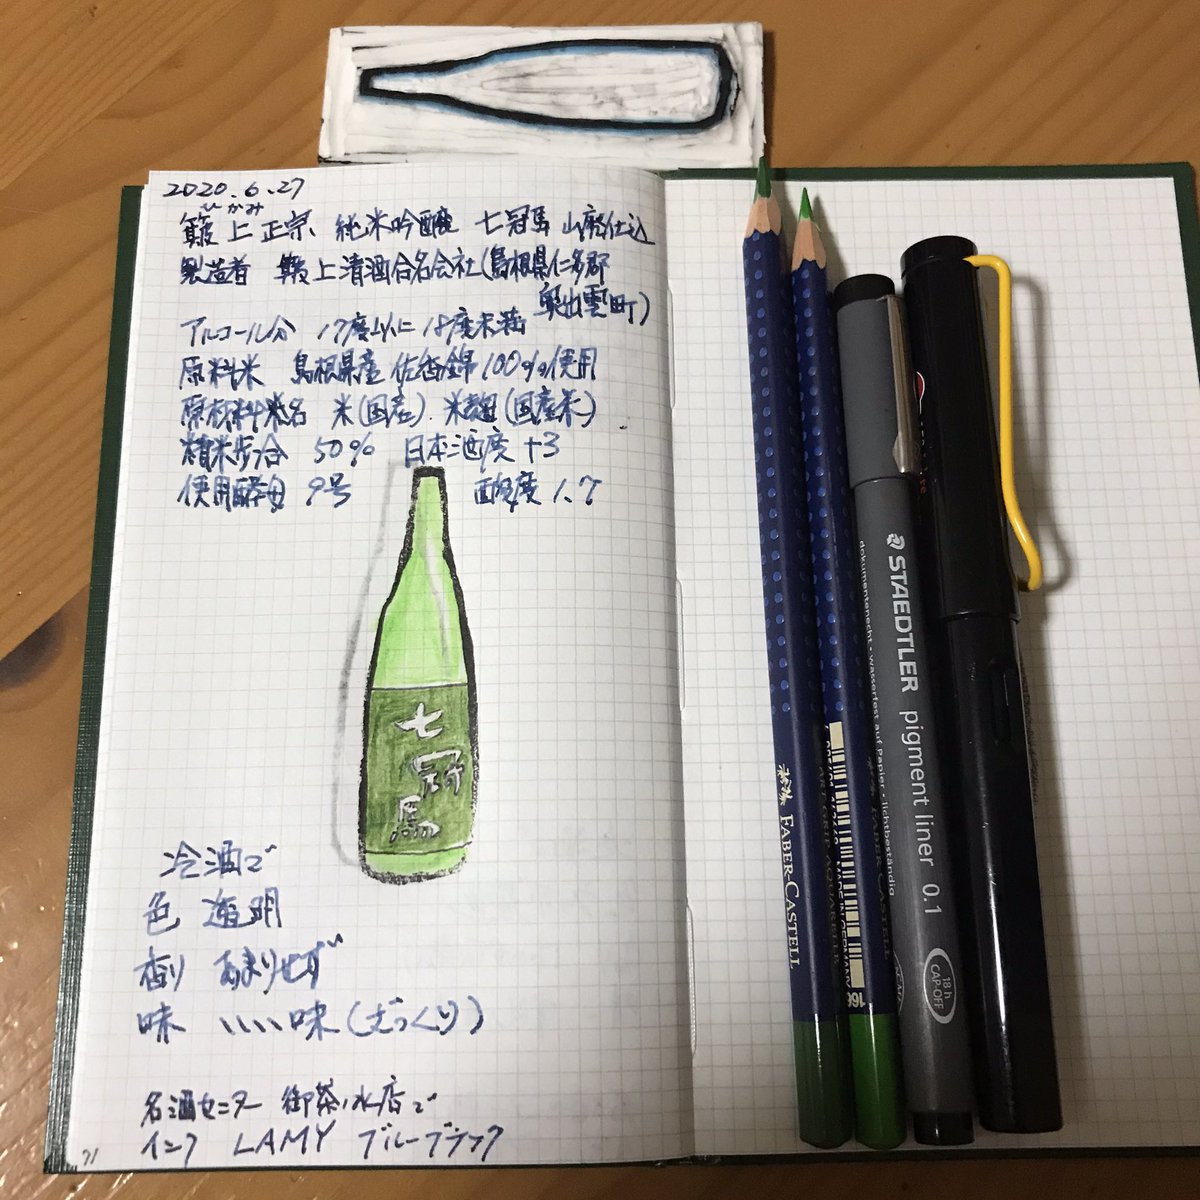 2020.6.27
ひかみ
簸上正宗 純米吟醸 七冠馬 山廃仕込
製造者 簸上清酒合名会社(島根県仁多郡
奥出雲町)
アルコール分 17度以上18度未満
原料米 島根県産 佐香錦100%使用
原材料米名 米(国産).米麹(国産米)
精米歩合 50% 日本酒度 +3
使用酵母 9号 酸度 1.7
七冠馬
冷酒で
色 透明
香り あまりせず
味 いい味(ざっくり)
名酒センター 御茶ノ水店で
インク LAMY ブルーブラック
71
FABER-CASTELL
MADE IN GERMANY
STAEDTLER pigment liner 0.1
dokumentenecht · wasserfest auf Papier · lichtbeständig
18 h
CAP-OFF